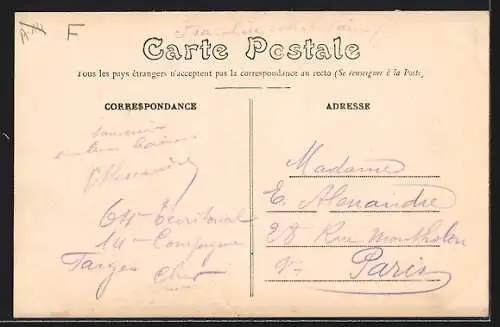 F
Carte Postale
Tous les pays étrangers n'acceptent pas la correspondance au recto (Se renseigner à la Poste)
CORRESPONDANCE
souvenir
Alexandre
64e Territorial
14e Compagnie
Farges Cher
ADRESSE
Madame
E. Alexandre
28 Rue Montholon
Paris